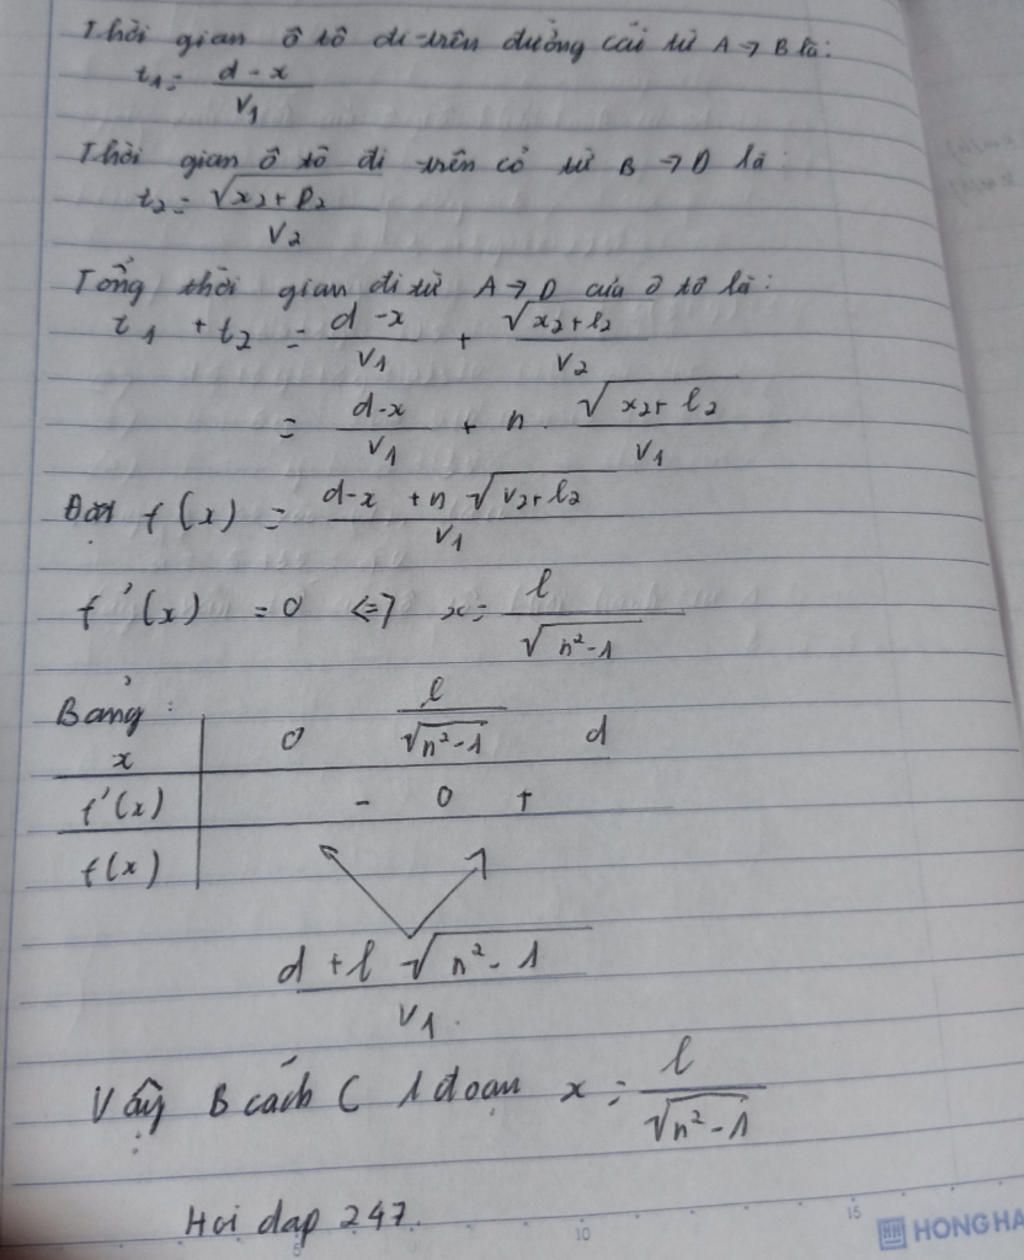 Thời gian ô tô đi trên đường cái từ A → B là:
t₁ = (d - x)/V₁
Thời gian ô tô đi trên cỏ từ B → D là
t₂ = √(x₂ + l₂)/V₂
Tổng thời gian đi từ A → D của ô tô là:
t₁ + t₂ = (d - x)/V₁ + √(x₂ + l₂)/V₂
= (d - x)/V₁ + n . √(x₂ + l₂)/V₁
Đặt f(x) = (d - x + n√(v₂ + l₂))/V₁
f'(x) = 0 <=> x = l/√(n² - 1)
Bảng:
x | 0 l/√(n² - 1) d
f'(x) | - 0 +
f(x) |
(d + l√(n² - 1))/V₁.
Vậy B cách C 1 đoạn x = l/√(n² - 1)
Hoi dap 247.
5 10 15
HH HONG HA